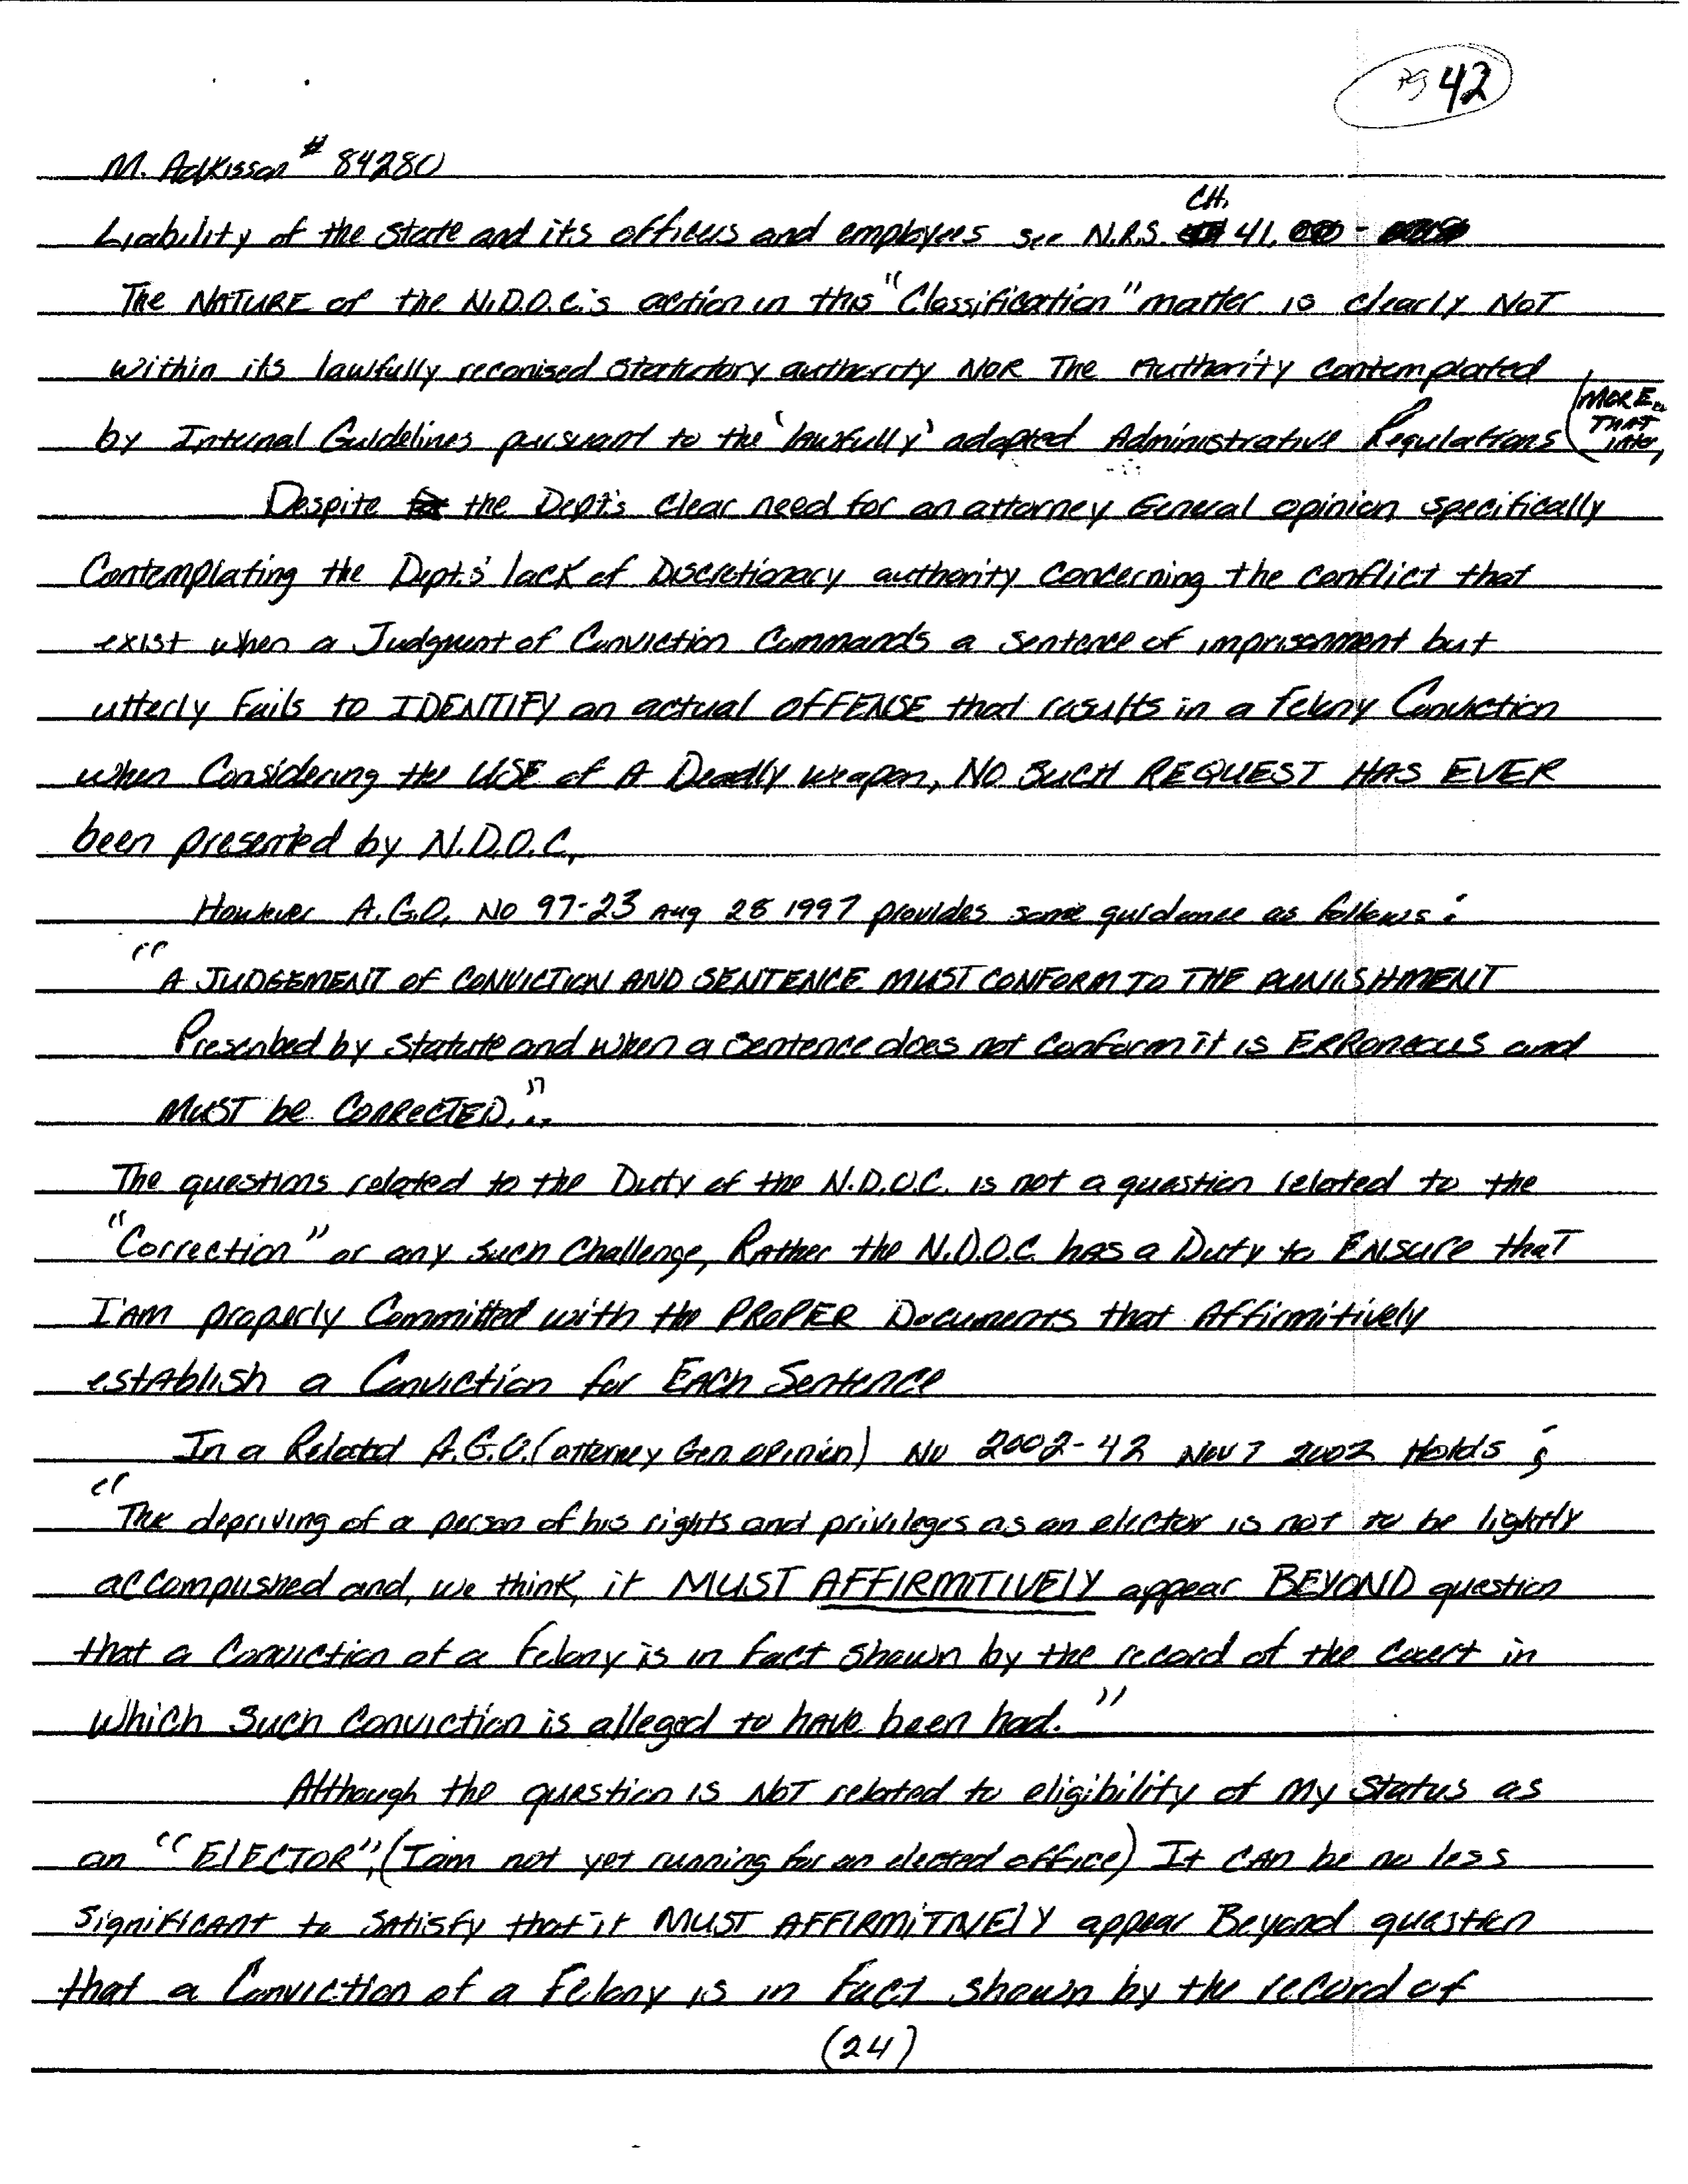 pg 42
M. Adkisson # 84280
Liability of the State and its officers and employees see N.R.S. CH. 41.
The NATURE of the N.D.O.C.'s action in this "Classification" matter is clearly NOT
within its lawfully reconised Statutory authority NOR The Authority contemplated
by Internal Guidelines pursuant to the 'lawfully' adopted Administrative Regulations (MORE ON THAT later,
Despite the Dept's Clear need for an attorney General opinion specifically
Contemplating the Dept.s' lack of Discretionary authority concerning the conflict that
exist when a Judgment of Conviction Commands a sentence of imprisonment but
utterly Fails to IDENTIFY an actual OFFENSE that results in a felony Conviction
when Considering the USE of A Deadly weapon, NO SUCH REQUEST HAS EVER
been presented by N.D.O.C.
However A.G.O. No 97-23 Aug 28 1997 provides some guidance as follows:
"A JUDGEMENT OF CONVICTION AND SENTENCE MUST CONFORM TO THE PUNISHMENT
Prescribed by Statute and when a sentence does not conform it is ERRONEOUS and
MUST be CORRECTED..."
The questions related to the Duty of the N.D.O.C. is not a question related to the
"Correction" or any such Challenge, Rather the N.D.O.C. has a Duty to ENSURE that
I'AM properly Committed with the PROPER Documents that Affirmitively
establish a Conviction for EACH Sentence
In a Related A.G.O. (attorney Gen opinion) No 2002-42 Nov 7 2002 Holds ;
"The depriving of a person of his rights and privileges as an elector is not to be lightly
accomplished and, we think, it MUST AFFIRMITIVELY appear BEYOND question
that a Conviction of a Felony is in fact shown by the record of the Court in
which Such Conviction is alleged to have been had."
Although the question is NOT related to eligibility of My Status as
an "ELECTOR", (I am not yet running for an elected office) It CAN be no less
significant to satisfy that it MUST AFFIRMITIVELY appear Beyond question
that a Conviction of a Felony is in fact shown by the record of
(24)